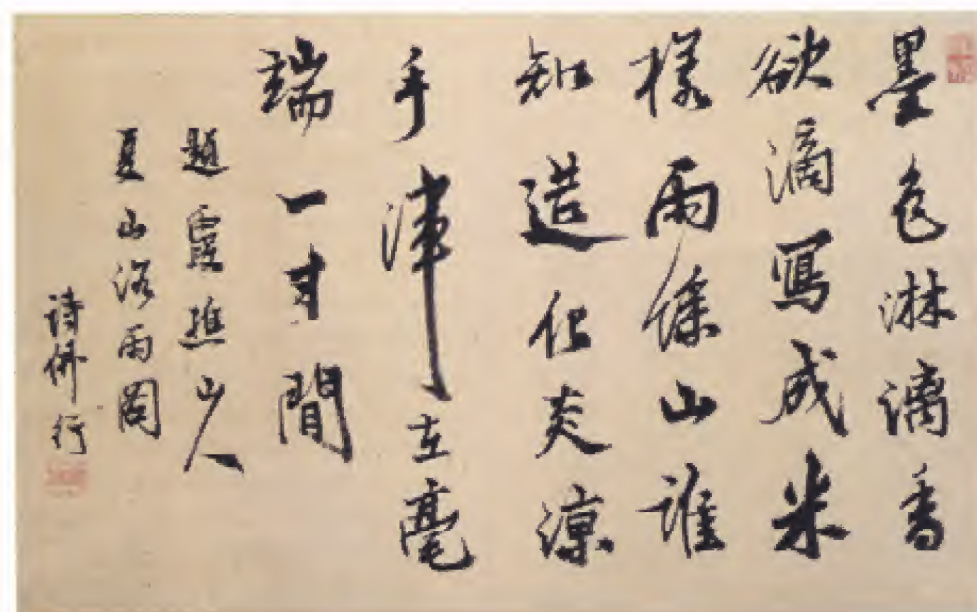 墨色淋漓香
欲滴寫成米
樣雨餘山誰
知造化炎涼
手渾在毫
端一寸間
題霞樵山人
夏山浴雨圖
詩佛行